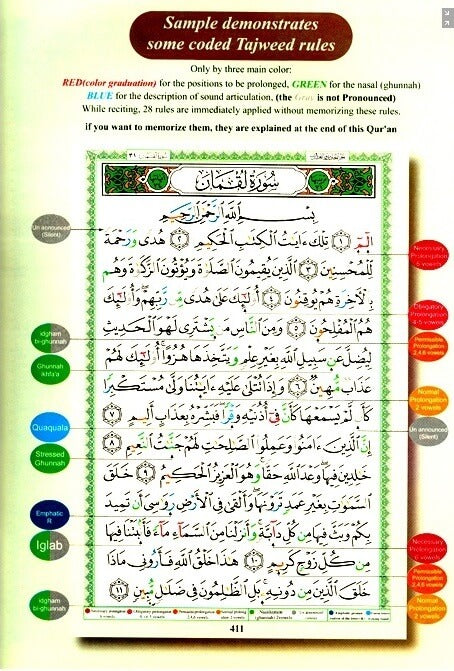 Sample demonstrates
some coded Tajweed rules
Only by three main color:
RED(color graduation) for the positions to be prolonged, GREEN for the nasal (ghunnah)
BLUE for the description of sound articulation, (the Gray is not Pronounced)
While reciting, 28 rules are immediately applied without memorizing these rules.
if you want to memorize them, they are explained at the end of this Qur'an
سُورَةُ لُقْمَانَ
بِسْمِ ٱللَّهِ ٱلرَّحْمَٰنِ ٱلرَّحِيمِ
الٓمٓ ١ تِلْكَ ءَايَٰتُ ٱلْكِتَٰبِ ٱلْحَكِيمِ ٢ هُدًى وَرَحْمَةً
لِّلْمُحْسِنِينَ ٣ ٱلَّذِينَ يُقِيمُونَ ٱلصَّلَوٰةَ وَيُؤْتُونَ ٱلزَّكَوٰةَ وَهُم
بِٱلْءَاخِرَةِ هُمْ يُوقِنُونَ ٤ أُو۟لَٰٓئِكَ عَلَىٰ هُدًى مِّن رَّبِّهِمْ وَأُو۟لَٰٓئِكَ
هُمُ ٱلْمُفْلِحُونَ ٥ وَمِنَ ٱلنَّاسِ مَن يَشْتَرِى لَهْوَ ٱلْحَدِيثِ
لِيُضِلَّ عَن سَبِيلِ ٱللَّهِ بِغَيْرِ عِلْمٍ وَيَتَّخِذَهَا هُزُوًا أُو۟لَٰٓئِكَ لَهُمْ
عَذَابٌ مُّهِينٌ ٦ وَإِذَا تُتْلَىٰ عَلَيْهِ ءَايَٰتُنَا وَلَّىٰ مُسْتَكْبِرًا
كَأَن لَّمْ يَسْمَعْهَا كَأَنَّ فِىٓ أُذُنَيْهِ وَقْرًا فَبَشِّرْهُ بِعَذَابٍ أَلِيمٍ ٧
إِنَّ ٱلَّذِينَ ءَامَنُوا۟ وَعَمِلُوا۟ ٱلصَّٰلِحَٰتِ لَهُمْ جَنَّٰتُ ٱلنَّعِيمِ ٨
خَٰلِدِينَ فِيهَا وَعْدَ ٱللَّهِ حَقًّا وَهُوَ ٱلْعَزِيزُ ٱلْحَكِيمُ ٩ خَلَقَ
ٱلسَّمَٰوَٰتِ بِغَيْرِ عَمَدٍ تَرَوْنَهَا وَأَلْقَىٰ فِى ٱلْأَرْضِ رَوَٰسِىَ أَن تَمِيدَ
بِكُمْ وَبَثَّ فِيهَا مِن كُلِّ دَآبَّةٍ وَأَنزَلْنَا مِنَ ٱلسَّمَآءِ مَآءً فَأَنۢبَتْنَا فِيهَا
مِن كُلِّ زَوْجٍ كَرِيمٍ ١٠ هَٰذَا خَلْقُ ٱللَّهِ فَأَرُونِى مَاذَا
خَلَقَ ٱلَّذِينَ مِن دُونِهِۦ بَلِ ٱلظَّٰلِمُونَ فِى ضَلَٰلٍ مُّبِينٍ ١١
411
Un announced
(Silent)
idgham
bi-ghunnah
Ghunnah
ikhfa'a
Quaquala
Stressed
Ghunnah
Emphatic
R
Iglab
idgham
bi-ghunnah
Necessary
Prolongation
6 vowels
Obligatory
Prolongation
4-5 vowels
Permissible
Prolongation
2,4,6 vowels
Normal
Prolongation
2 vowels
Un announced
(Silent)
Necessary
Prolongation
6 vowels
Permissible
Prolongation
2,4,6 vowels
Normal
Prolongation
2 vowels